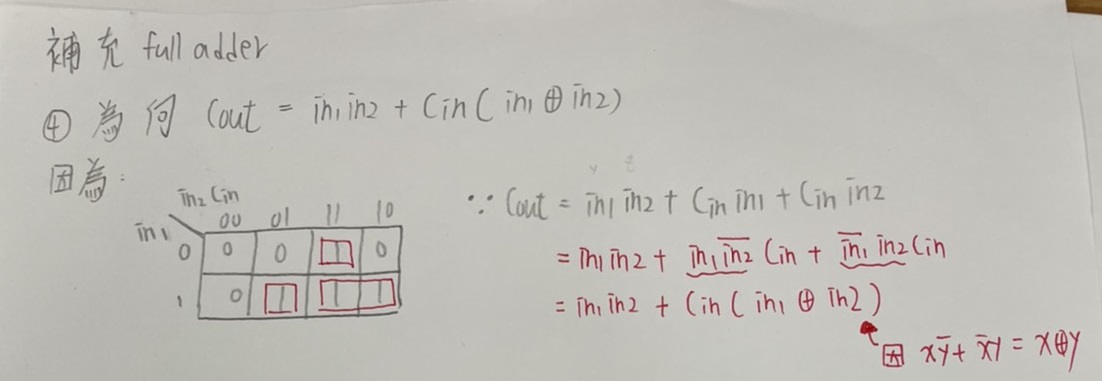 補充 full adder
④ 為何 Cout = in1 in2 + Cin ( in1 ⊕ in2 )
因為:
in2 Cin
in1 00 01 11 10
0 0 0 1 0
1 0 1 1 1
∵ Cout = in1 in2 + Cin in1 + Cin in2
= in1 in2 + in1 i̅n̅2̅ Cin + i̅n̅1̅ in2 Cin
= in1 in2 + Cin ( in1 ⊕ in2 )
因 xy̅ + x̅y = x⊕y